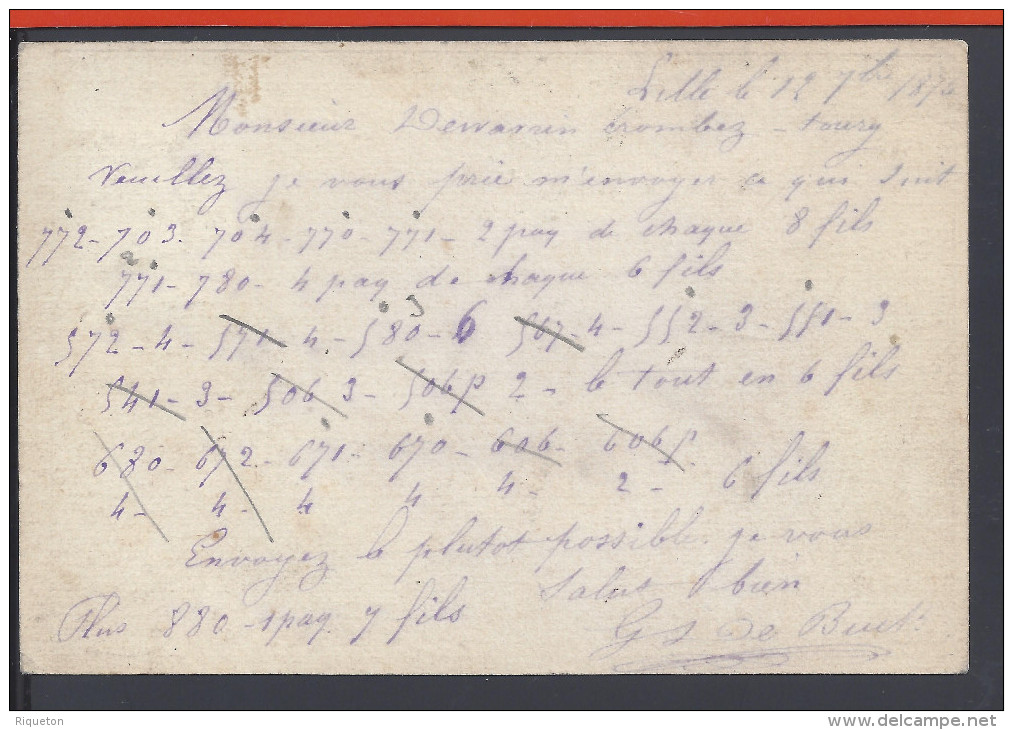 Lille le 12 7bre 187
Monsieur Dewarrin Crombez - toury
Veuillez je vous prie m'envoyer ce que suit
772 - 703 - 704 - 770 - 771 - 2 paq de chaque 8 fils
2
771 - 780 - 4 paq de chaque 6 fils
3
572 - 4 - 571 - 4 - 580 - 6 507 - 4 - 552 - 3 - 551 - 3
541 - 3 - 506 3 - 506 p 2 - le tout en 6 fils
680 - 672 - 671 - 670 - 606 - 606 p.
4 - 4 - 4 4 4 - 2 - 6 fils
Envoyez le plutot possible. je vous
Salus bien
Plus 880 - 1 paq. 7 fils
De
Riqueton
www.delcampe.net